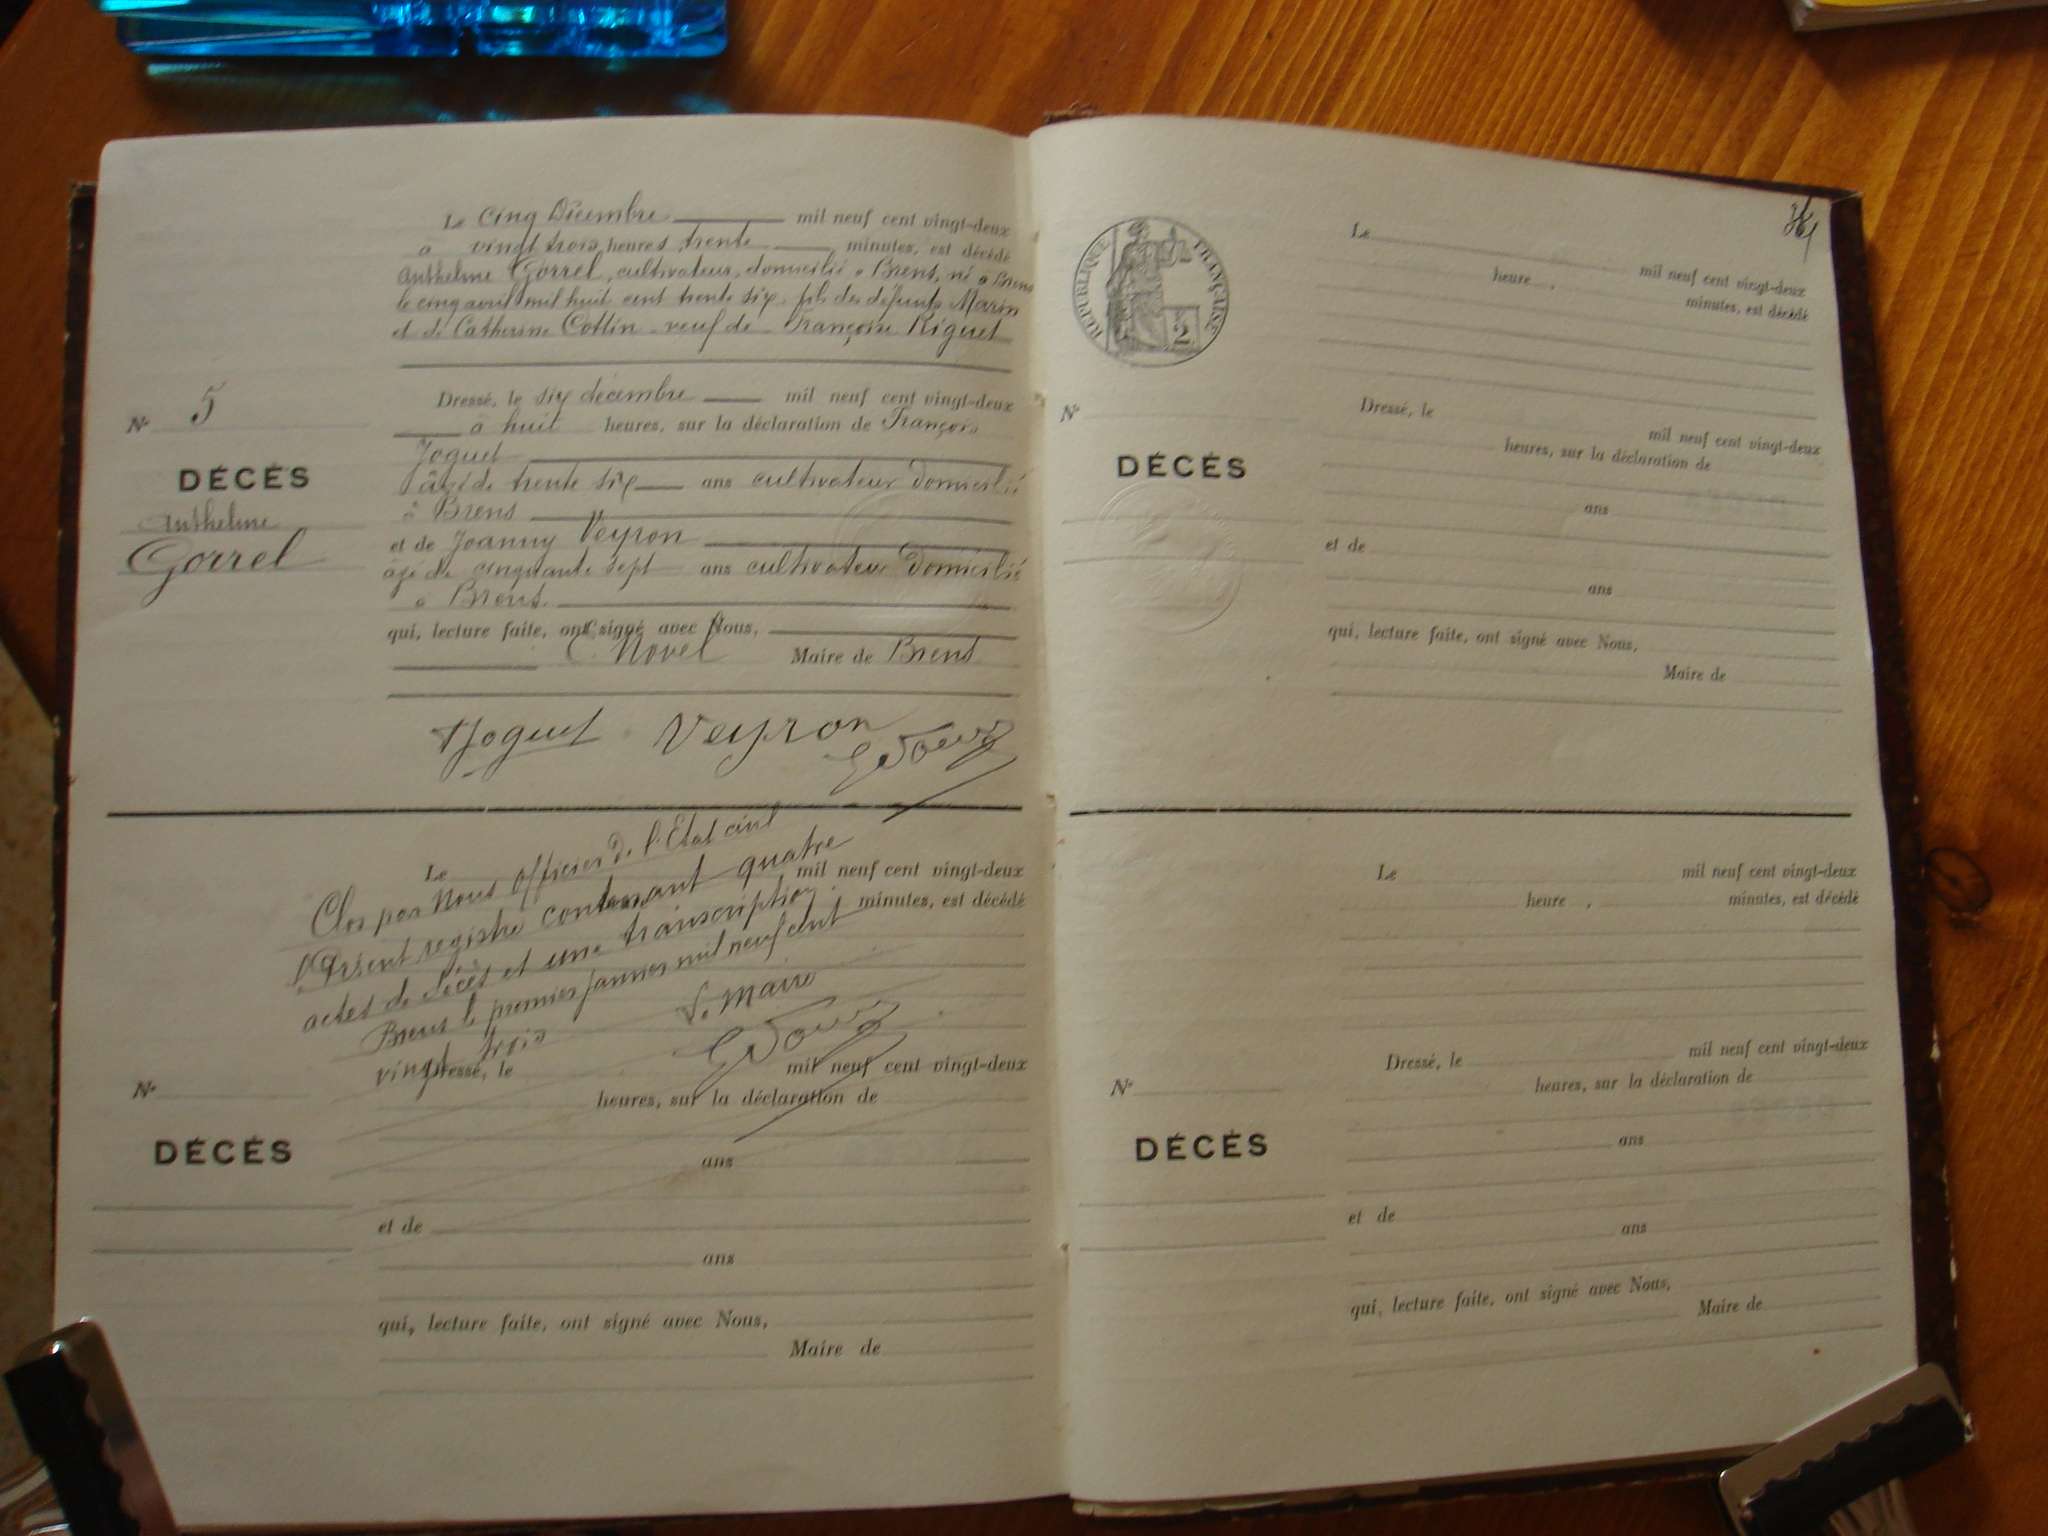 Le cinq Décembre mil neuf cent vingt-deux
à vingt trois heures trente minutes, est décédé
Anthelme Gorrel, cultivateur, domicilié à Brens, né à Brens
le cinq avril mil huit cent trente six, fils des défunts Marin
et de Catherine Cottin veuf de Françoise Riguet
Dressé, le six décembre mil neuf cent vingt-deux
à huit heures, sur la déclaration de François
Joguet
âgé de trente six ans cultivateur domicilié
à Brens
et de Joanny Veyron
âgé de cinquante sept ans cultivateur domicilié
à Brens
qui, lecture faite, ont signé avec Nous,
C. Novel Maire de Brens
Joguet Veyron
N° 5
DÉCÈS
Anthelme
Gorrel
Le mil neuf cent vingt-deux
minutes, est décédé
Clos par Nous officier de l'Etat civil
le présent registre contenant quatre
actes de décès et une transcription
Brens le premier janvier mil neuf cent
vingt trois Le Maire
Dressé, le mil neuf cent vingt-deux
heures, sur la déclaration de
N°
DÉCÈS
ans
et de
ans
qui, lecture faite, ont signé avec Nous,
Maire de
RÉPUBLIQUE FRANÇAISE
2
Le mil neuf cent vingt-deux
heure , minutes, est décédé
Dressé, le mil neuf cent vingt-deux
heures, sur la déclaration de
N°
DÉCÈS
ans
et de
ans
qui, lecture faite, ont signé avec Nous,
Maire de
Le mil neuf cent vingt-deux
heure , minutes, est décédé
Dressé, le mil neuf cent vingt-deux
heures, sur la déclaration de
N°
DÉCÈS
ans
et de
ans
qui, lecture faite, ont signé avec Nous,
Maire de